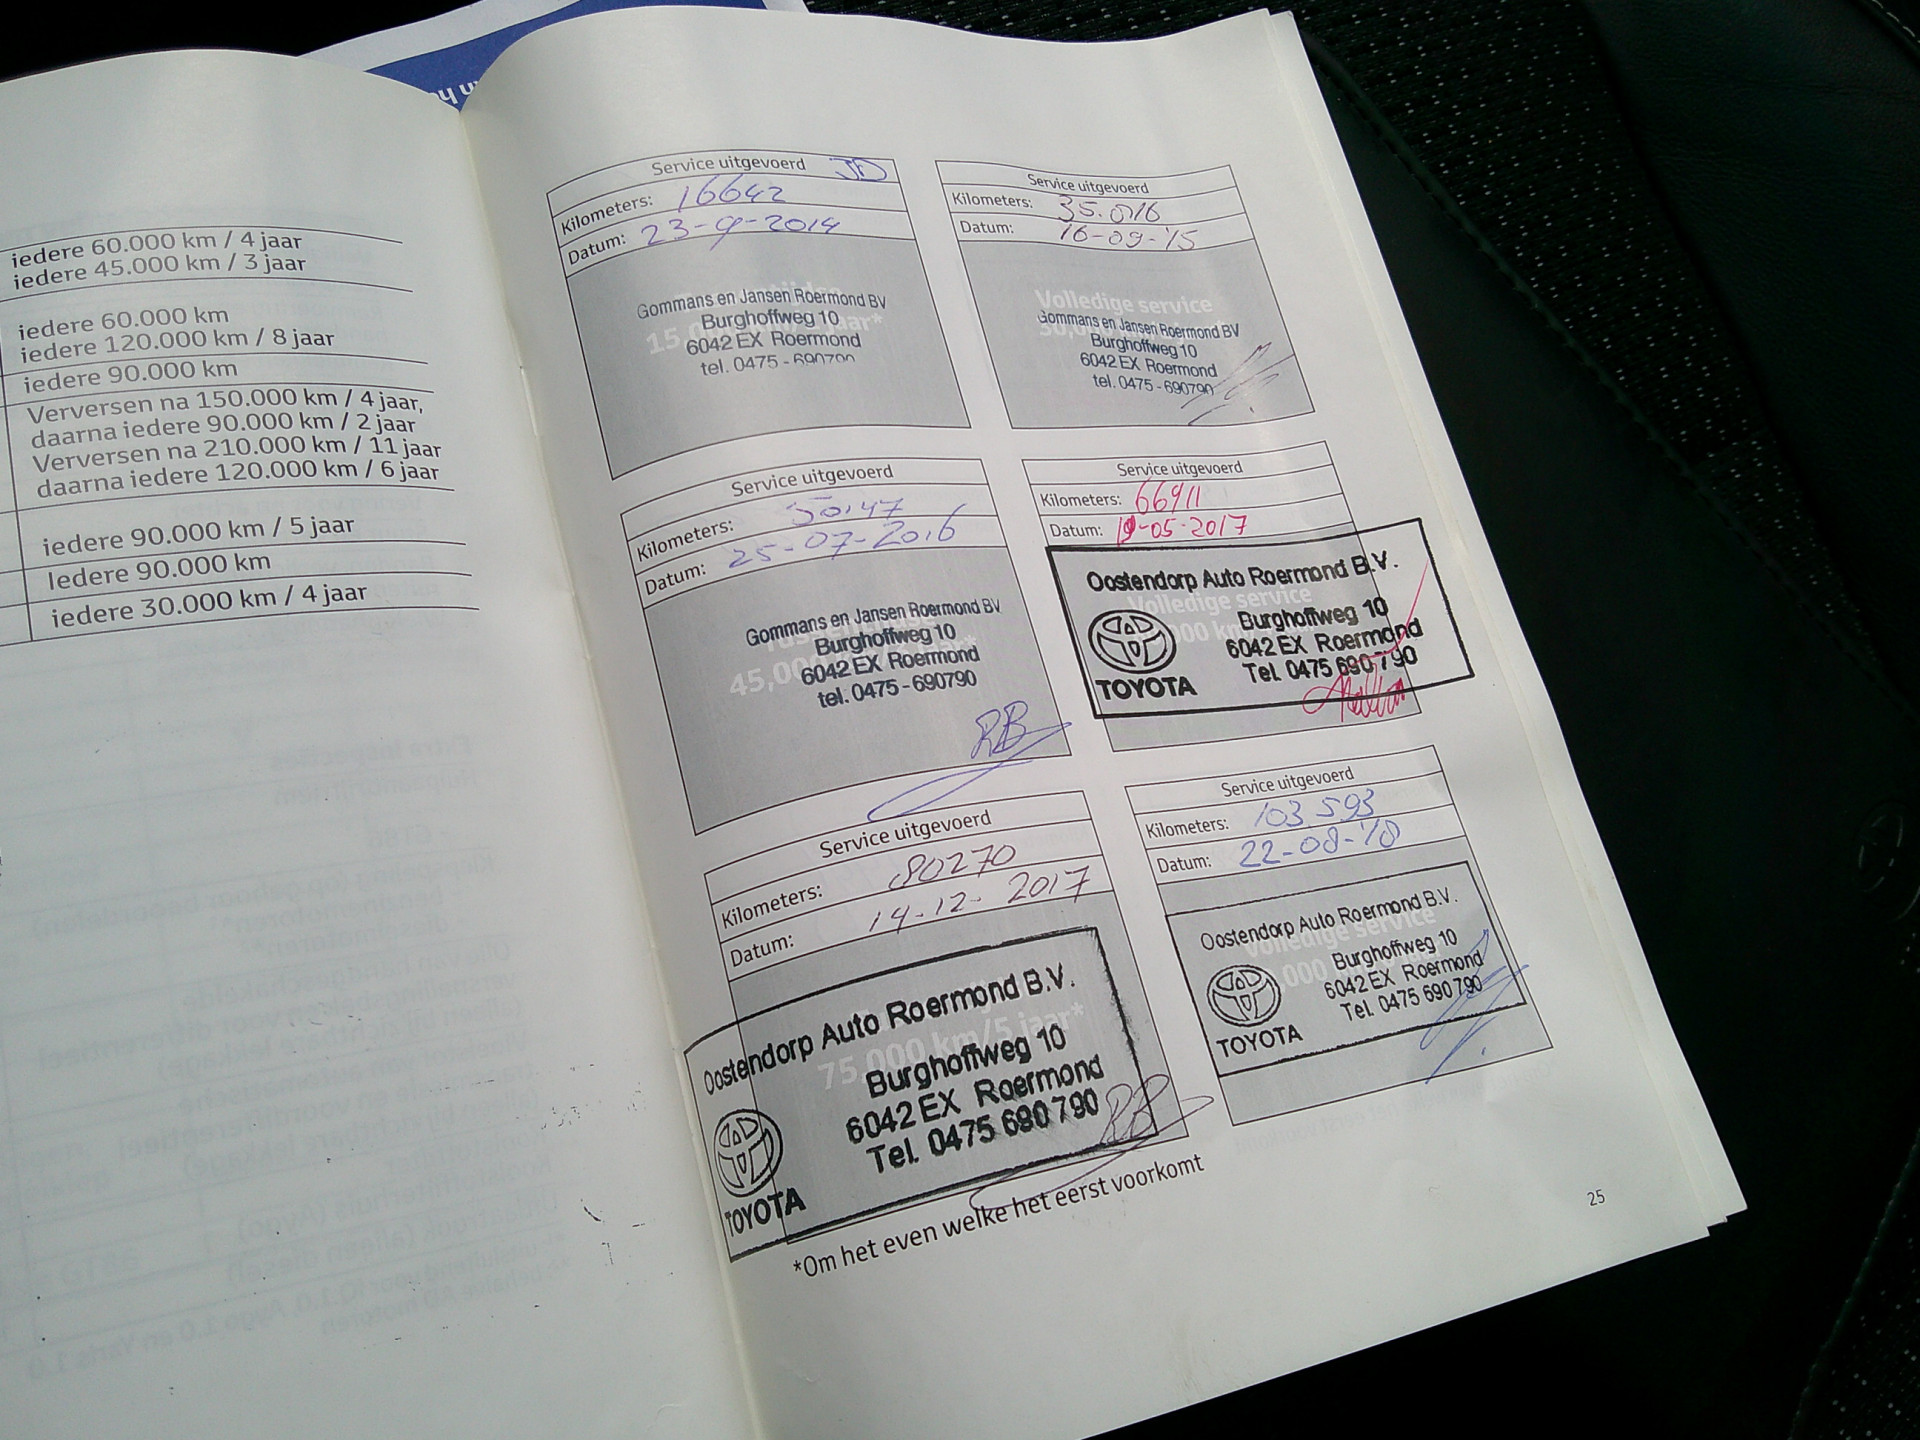 n he
iedere 60.000 km / 4 jaar
iedere 45.000 km / 3 jaar
iedere 60.000 km
iedere 120.000 km / 8 jaar
iedere 90.000 km
Verversen na 150.000 km / 4 jaar,
daarna iedere 90.000 km / 2 jaar
Verversen na 210.000 km / 11 jaar
daarna iedere 120.000 km / 6 jaar
iedere 90.000 km / 5 jaar
Iedere 90.000 km
iedere 30.000 km / 4 jaar
Service uitgevoerd JD
Kilometers: 16642
Datum: 23-9-2014
Gommans en Jansen Roermond BV
Burghoffweg 10
6042 EX Roermond
tel. 0475 - 690790
Service uitgevoerd
Kilometers: 35.016
Datum: 16-09-'15
Volledige service
Gommans en Jansen Roermond BV
Burghoffweg 10
6042 EX Roermond
tel. 0475 - 690790
Service uitgevoerd
Kilometers: 50147
Datum: 25-07-2016
Gommans en Jansen Roermond BV
Burghoffweg 10
45,0
6042 EX Roermond
tel. 0475 - 690790
RB
Service uitgevoerd
Kilometers: 66911
Datum: 19-05-2017
Oostendorp Auto Roermond B.V.
Volledige service
Burghoffweg 10
6042 EX Roermond
Tel. 0475 690790
TOYOTA
Service uitgevoerd
Kilometers: 80270
Datum: 14-12-2017
Oostendorp Auto Roermond B.V.
75,000 km/5 jaar*
Burghoffweg 10
6042 EX Roermond
Tel. 0475 690790
TOYOTA
RB
Service uitgevoerd
Kilometers: 103 593
Datum: 22-08-'18
Oostendorp Auto Roermond B.V.
Volledige service
Burghoffweg 10
6042 EX Roermond
Tel. 0475 690790
TOYOTA
*Om het even welke het eerst voorkomt
25